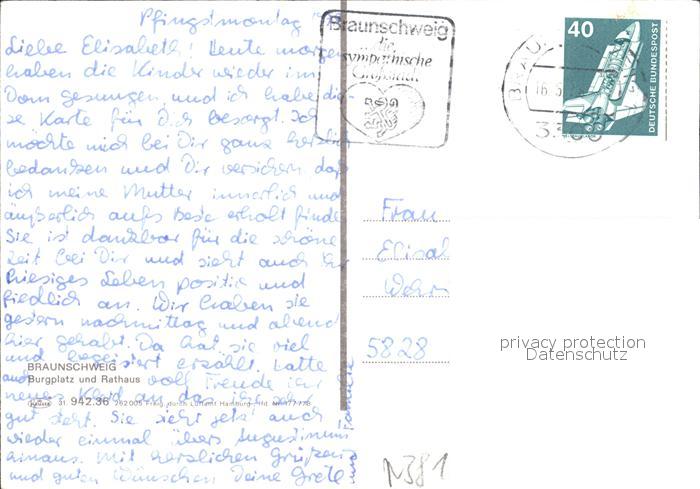 Pfingstmontag
Liebe Elisabeth! Heute morgen
haben die Kinder wieder im
Dom gesungen und ich habe die-
se Karte für Dich besorgt. Ich
möchte mich bei Dir ganz herzlich
bedanken und Dir versichern daß
ich meine Mutter innerlich und
äußerlich aufs Beste erholt finde
Sie ist dankbar für die schöne
Zeit bei Dir und sieht auch ihr
hiesiges Leben positiv und
friedlich an. Wir haben sie
gestern nachmittag und abend
hier gehabt. Da hat sie viel
und begeistert erzählt. Hatte
auch voll Freude ihr
neues Kleid an das ihr
gut steht. Sie sieht jetzt auch
wieder einmal übers Augustinum
hinaus. Mit herzlichen Grüßen
und guten Wünschen Deine Grete
und Familie
BRAUNSCHWEIG
Burgplatz und Rathaus
31. 942.36
Braunschweig
die
sympathische
Großstadt
40
DEUTSCHE BUNDESPOST
Frau
Elisa
5828
privacy protection
Datenschutz
N381